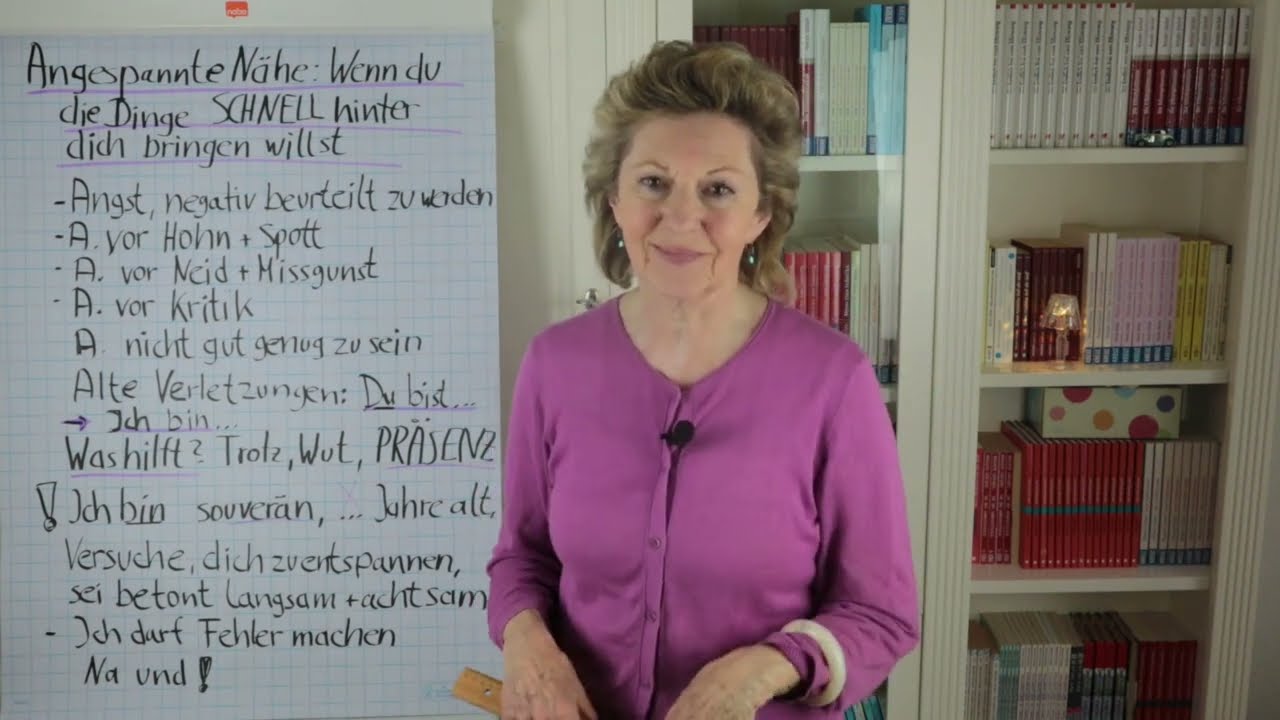 nobo
Angespannte Nähe: Wenn du
die Dinge SCHNELL hinter
dich bringen willst
- Angst, negativ beurteilt zu werden
- A. vor Hohn + Spott
- A. vor Neid + Missgunst
- A. vor Kritik
A. nicht gut genug zu sein
Alte Verletzungen: Du bist...
→ Ich bin...
Was hilft? Trotz, Wut, PRÄSENZ
! Ich bin souverän, ... Jahre alt,
Versuche, dich zu entspannen,
sei betont langsam + achtsam
- Ich darf Fehler machen
Na und!